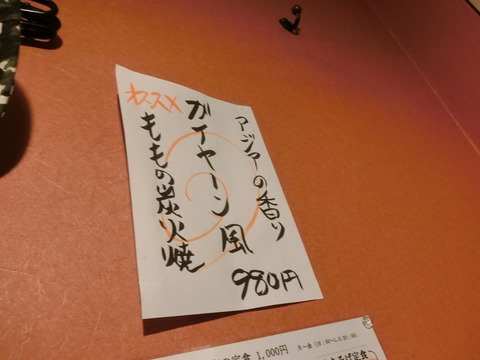 オススメ
アジアの香り
ガイヤーン風
ももの炭火焼
980円
定食 1,000円
定食